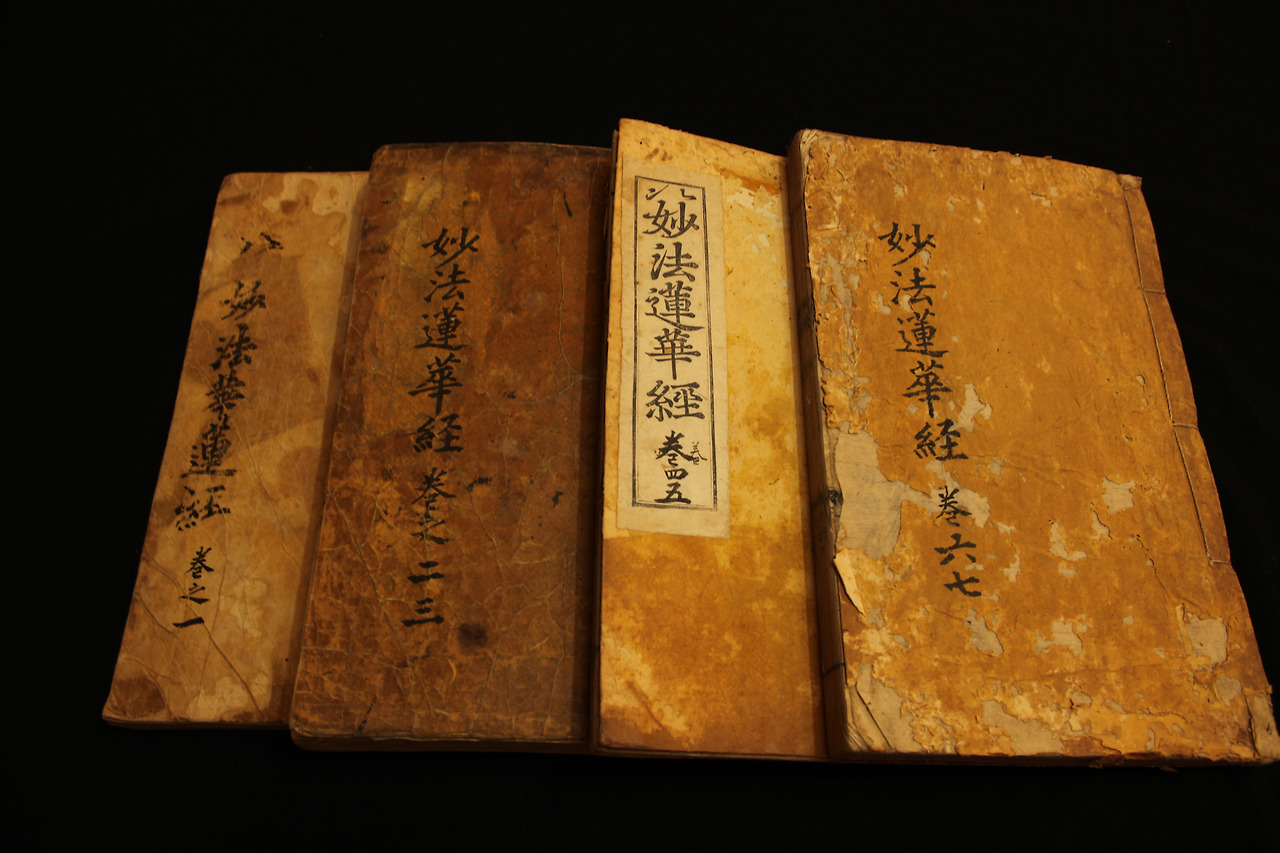 妙法華蓮經 卷之一
妙法蓮華經 卷之二三
妙法蓮華經 卷四五
卷
妙法蓮華經 卷六七